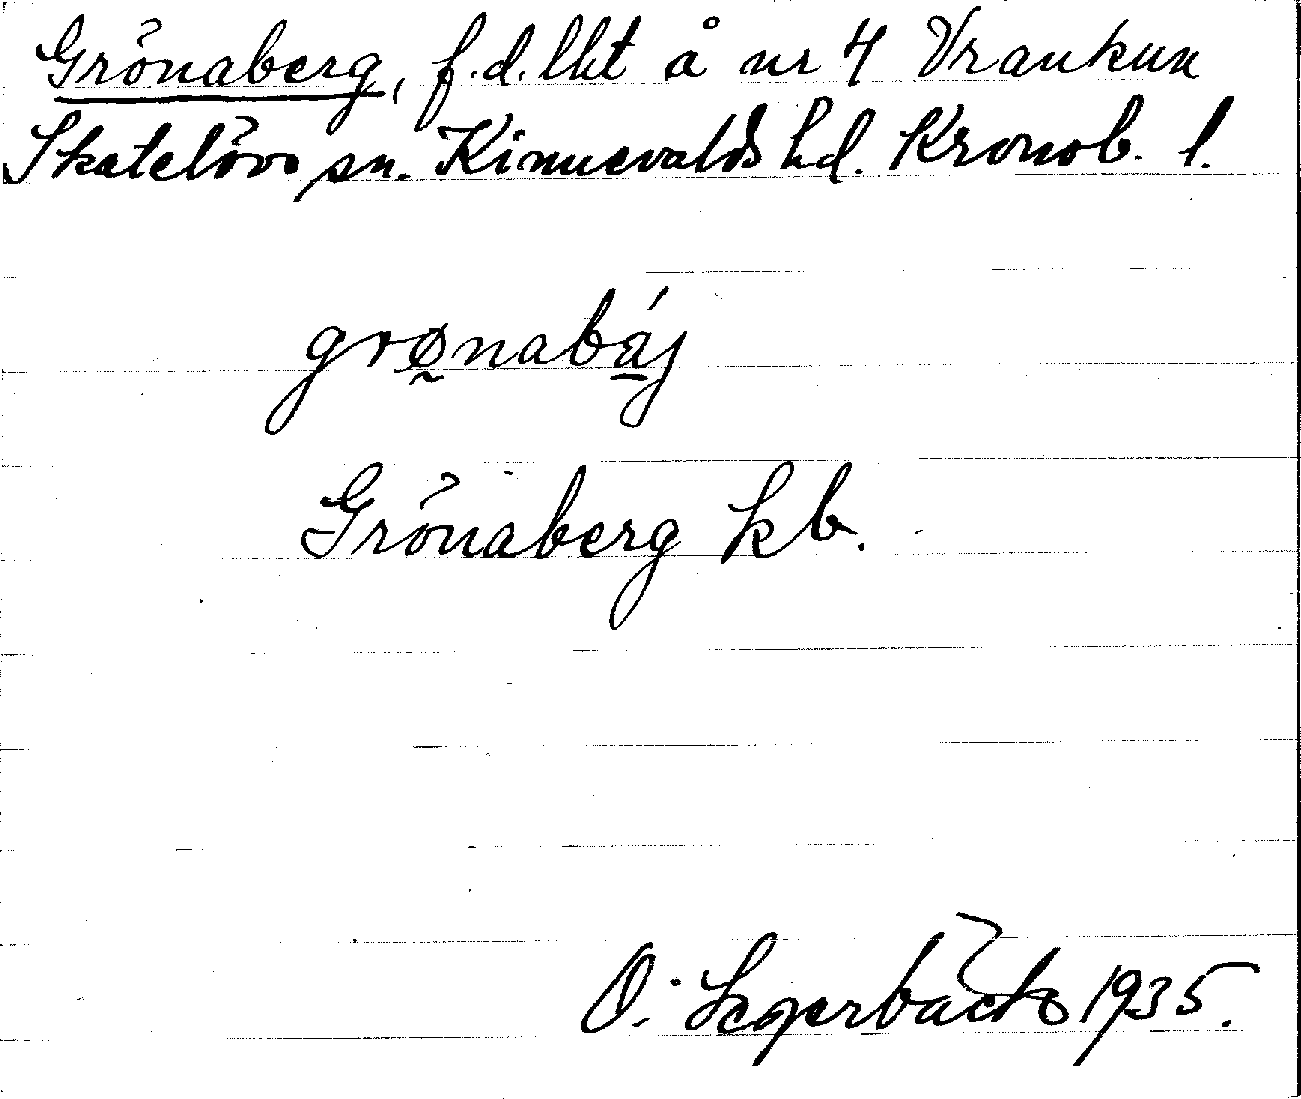 Grönaberg, f.d. lht å nr 4 Vrankun
Skatelövs sn. Kinnevalds hd. Kronob. l.
grø̰nabá̱j
Grönaberg kb.
O. Segerbäck 1935.